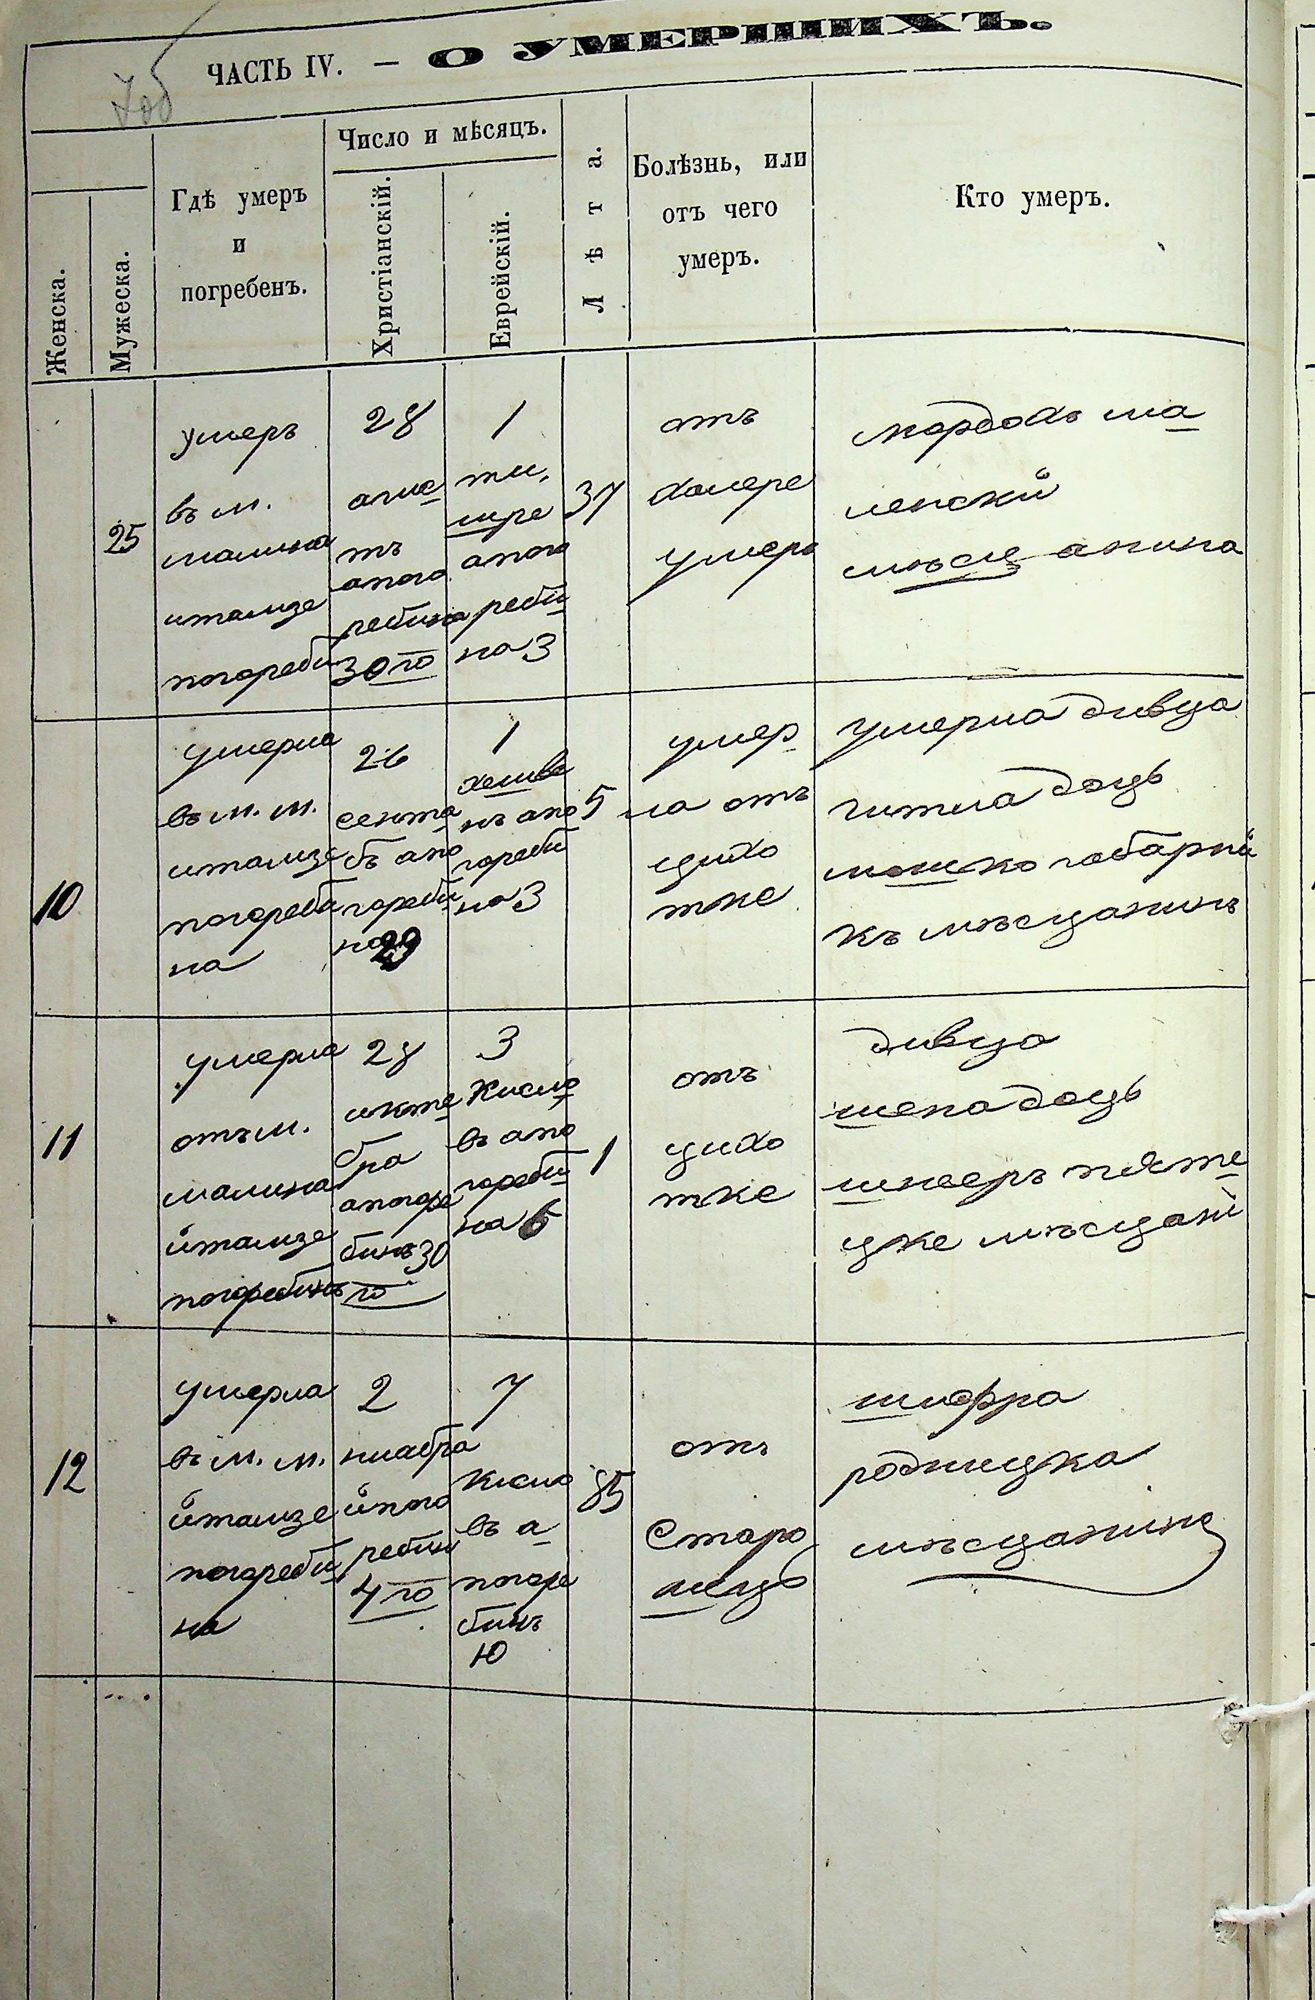 ЧАСТЬ IV. — О УМЕРШИХЪ.
Женска.
Мужеска.
Гдѣ умеръ
и
погребенъ.
Число и мѣсяцъ.
Христіанскій.
Еврейскій.
Лѣта.
Болѣзнь, или
отъ чего
умеръ.
Кто умеръ.
25
умеръ
въ м.
малина
итамзе
погреби
28
тъ
30 го
1
ти,
шре
на 3
37
отъ
холере
умеръ
мордохъ ма
ленскй
мѣсщанина
10
умерла
въ м. м.
итамзе
погреби
на
26
сента
бъ апо
гореби
на 29
1
хешве
нъ апо
гореби
на 3
5
умер
ла отъ
цихо
тке
умерла дивца
гитла доць
мошко габарнй
къ мѣсцанинъ
11
умерла
отъ м.
малина
йтамзе
погребинъ
28
окте
бра
апогоре
бинъ 30
го
3
Кисло
въ апо
гореби
на 6
1
отъ
цихо
тке
дивца
шена доць
цке мѣсцанй
12
умерла
въ м. м.
йтамзе
погореби
на
2
ниабра
йпого
ребин
4 го
7
Кисло
въ а
погоре
бинъ
10
85
отъ
Старо
шифра
родницка
мѣсцанине